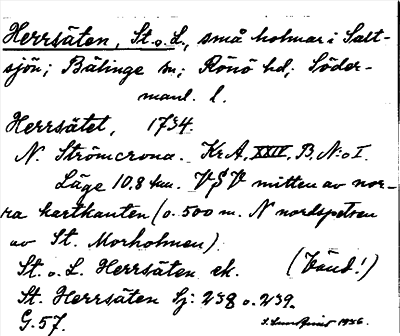 Herrsäten, St. o. L., små holmar i Salt-
sjön; Bälinge sn; Rönö hd; Söder-
manl. l.
Herrsätet, 1734.
N. Strömcrona. Kr.A. XXIV. B. N:o I.
Läge 10,8 km. VSV mitten av nor-
ra kartkanten (o. 500 m. N nordspetsen
av St. Morholmen).
St. o. L. Herrsäten ek. (Vänd!)
St. Herrsäten Sj: 238 o. 239.
G. 57. 1936.